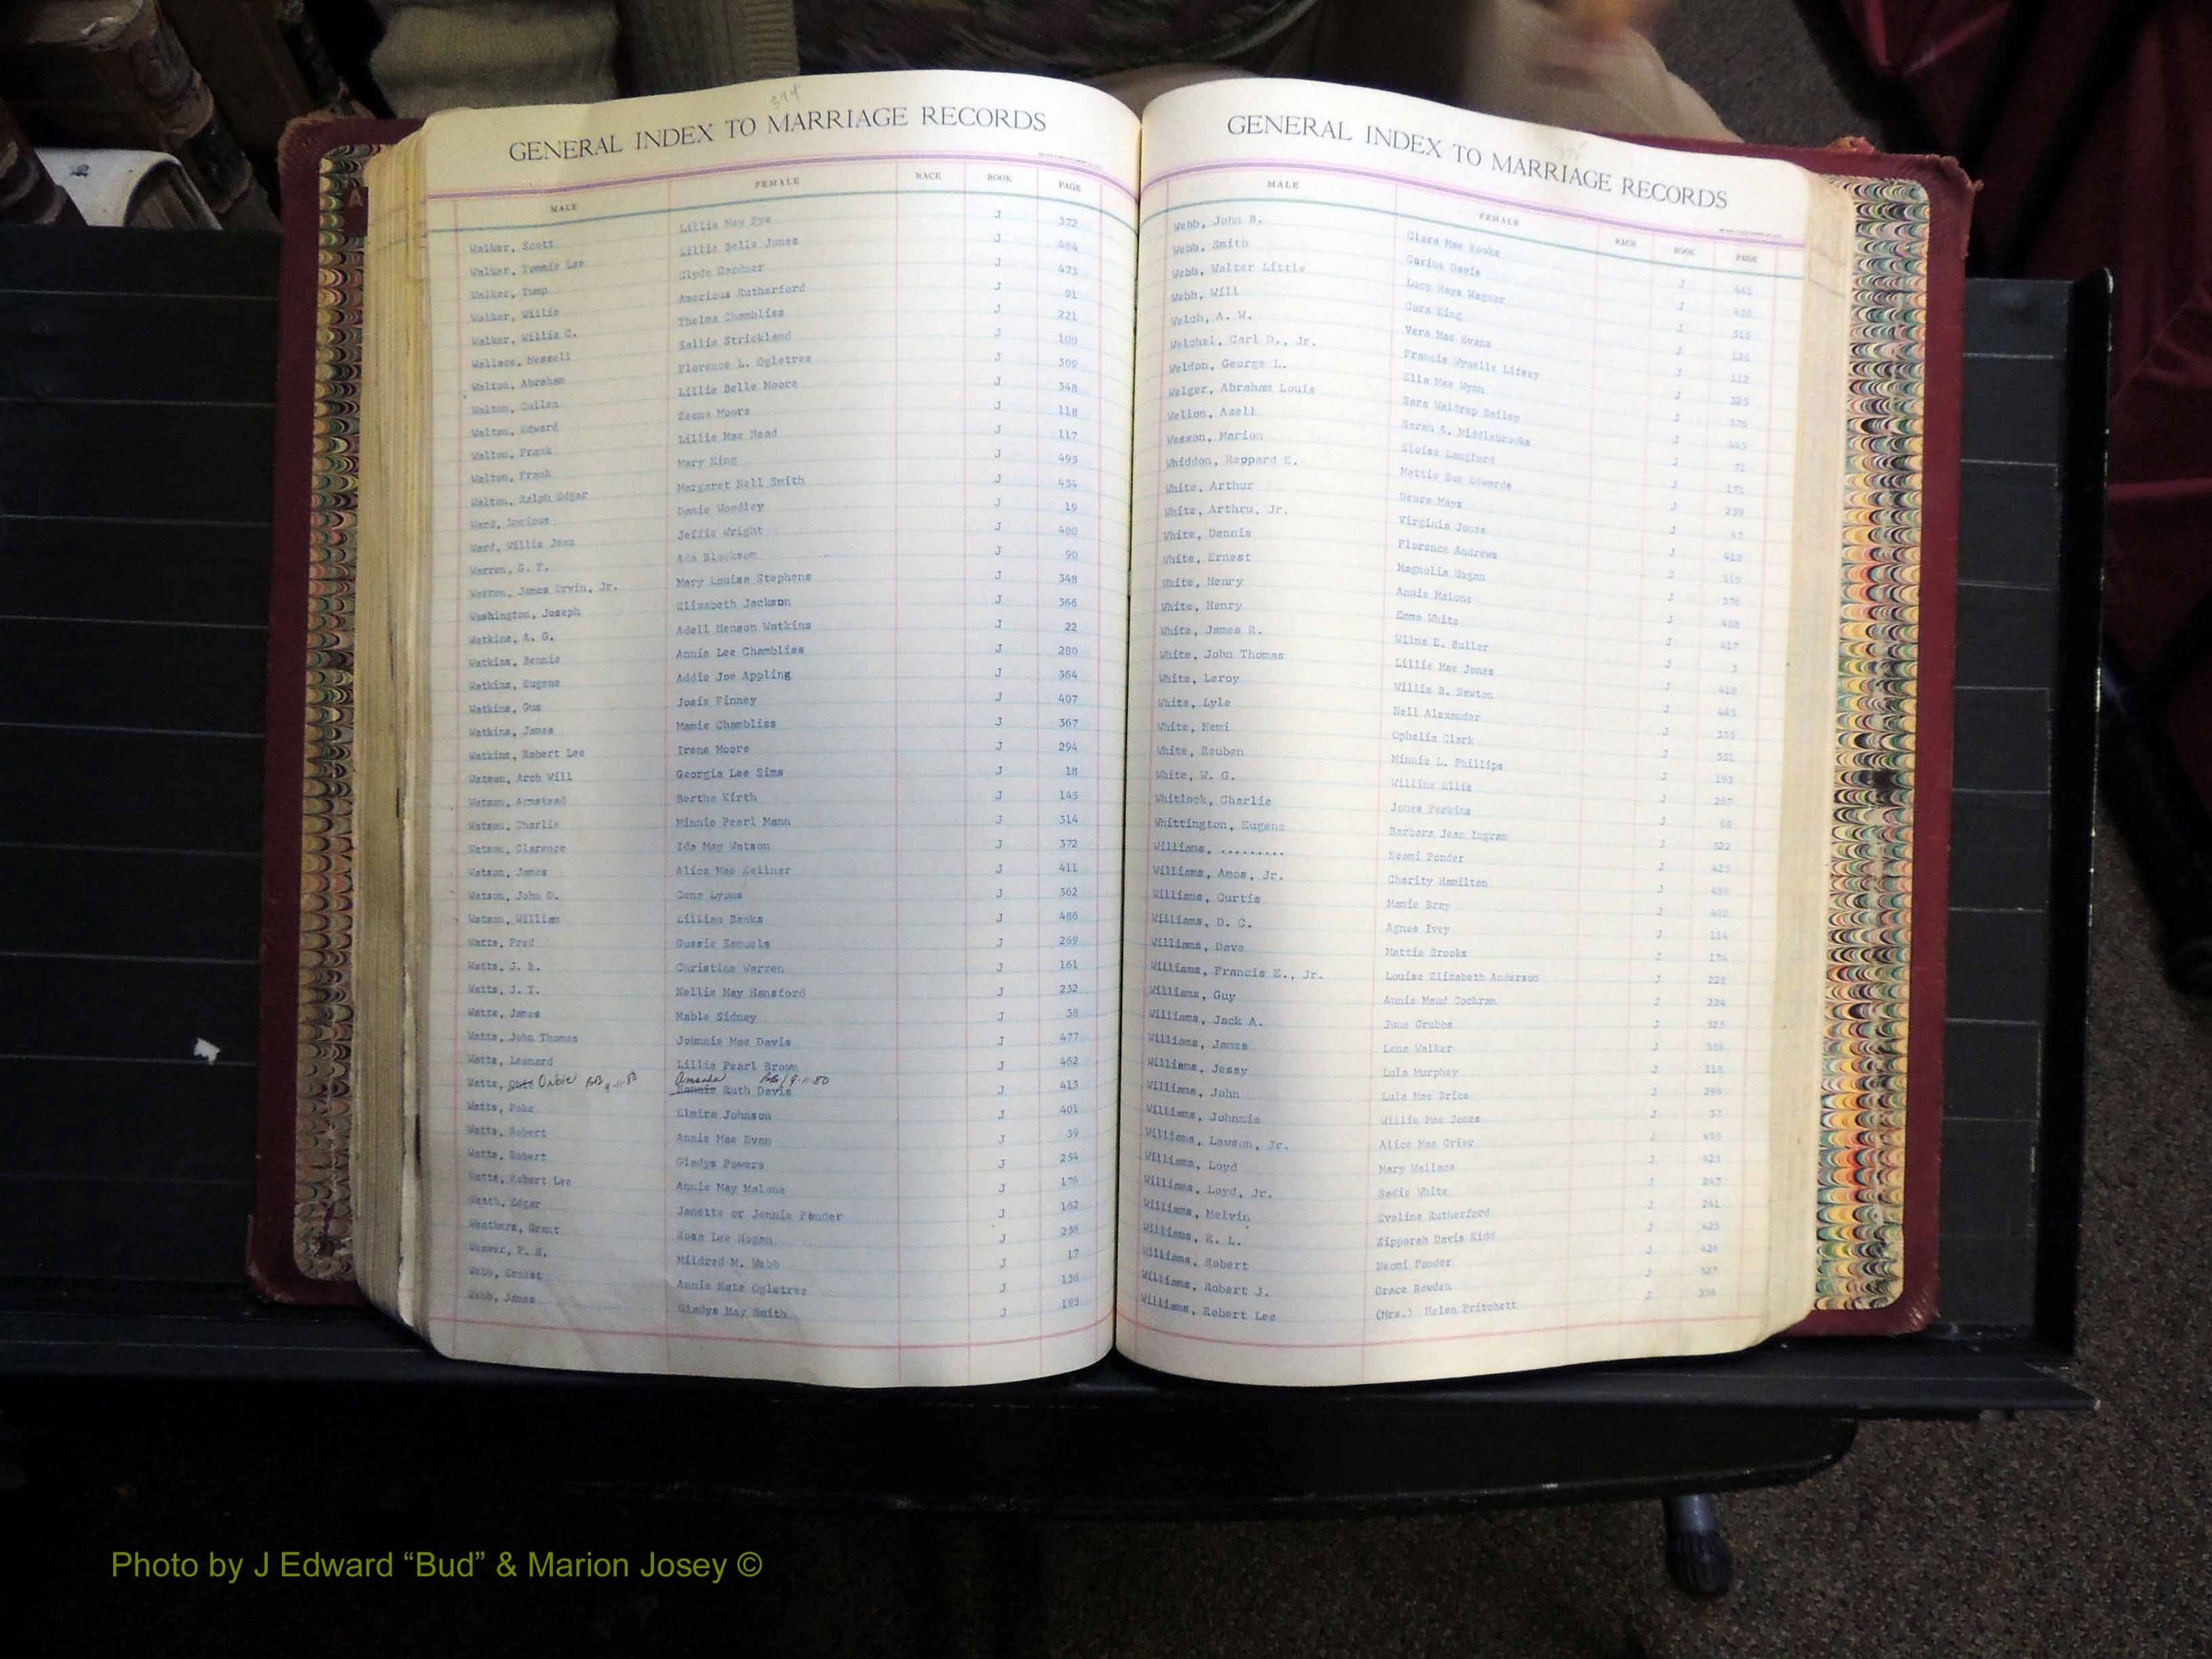 394
GENERAL INDEX TO MARRIAGE RECORDS
MALE FEMALE RACE BOOK PAGE
Walker, Scott Lillie May Pye J 372
Walker, Tommie Lee Lillie Belle Jones J 464
Walker, Tump Clyde Gardner J 473
Walker, Willie Americus Rutherford J 91
Walker, Willie C. Thelma Chambliss J 221
Wallace, Messell Sallie Strickland J 100
Walton, Abraham Florence L. Ogletree J 309
Walton, Cullen Lillie Belle Moore J 348
Walton, Edward Moore J 118
Walton, Frank Lillie Mae Head J 117
Walton, Frank Mary King J 495
Walton, Ralph Edgar Margaret Nell Smith J 454
Ward, Lucious Woodley J 19
Ward, Willie Jeffie Wright J 400
Warren, G. F. Ada J 90
Warren, James Erwin, Jr. Mary Louise Stephens J 348
Washington, Joseph Elizabeth Jackson J 366
Watkins, A. G. Adell Henson Watkins J 22
Watkins, Bennie Annie Lee Chambliss J 280
Watkins, Eugene Addie Joe Appling J 364
Watkins, Gus Josie Finney J 407
Watkins, James Mamie Chambliss J 367
Watkins, Robert Lee Irene Moore J 294
Watson, Arch Will Georgia Lee Sims J 18
Watson, Armstead Bertha Kirth J 145
Watson, Charlie Minnie Pearl Mann J 314
Watson, Clarence Ida May Watson J 372
Watson, James Alice Mae Kellner J 411
Watson, John D. Lyons J 362
Watson, William Lillian Banks J 486
Watts, Fred Gussie Samuels J 269
Watts, J. B. Christine Warren J 161
Watts, J. T. Nellie May Hansford J 232
Watts, James Mable Sidney J 38
Watts, John Thomas Johnnie Mae Davis J 477
Watts, Leonard Lillie Pearl Brown J 462
Watts, Onbie 9-11-80 Amanda 9-11-80 Nannie Ruth Davis J 413
Watts, Poke Elmira Johnson J 401
Watts, Robert Annie Mae Evan J 39
Watts, Robert Gladys Powers J 254
Watts, Robert Lee Annie May Malone J 176
Weath, Edgar Janette or Jennie Ponder J 162
Weathers, Grant Rosa Lee Hogan J 256
Weaver, P. H. Mildred M. Webb J 17
Webb, Ernest Annie Kate Ogletree J 136
Webb, James Gladys May Smith J 193
GENERAL INDEX TO MARRIAGE RECORDS
MALE FEMALE RACE BOOK PAGE
Webb, John B. Clara Mae Hooks J 441
Webb, Smith Carine Davis J 458
Webb, Walter Little Lucy Hays Wagner J 318
Webb, Will Cora King J 136
Welch, A. W. Vera Mae Evans J 112
Welchel, Carl D., Jr. Francis Wynelle Lifsey J 325
Weldon, George L. Ella Mae Wynn J 370
Welger, Abraham Louis Sara Waldrop Bailey J 445
Wellon, Azell Sarah A. Middlebrooks J 71
Wesson, Marion Eloise Langford J 171
Whiddon, Reppard E. Mattie Sue Edwards J 259
White, Arthur Deora Mays J 47
White, Arthru, Jr. Virginia Jones J 418
White, Dennis Florence Andrews J 115
White, Ernest Magnolia Hogan J 376
White, Henry Annie Malone J 488
White, Henry Emma White J 417
White, James R. Wilma E. Buller J 3
White, John Thomas Lillie Mae Jones J 418
White, Leroy Willie B. Newton J 445
White, Lyle Nell Alexander J 353
White, Nemi Ophelia Clark J 351
White, Reuben Minnie L. Phillips J 193
White, W. G. Willine Ellis J 267
Whitlock, Charlie Jones Perkins J 66
Whittington, Eugene Barbara Jean Ingram J 322
Williams, ......... Neomi Ponder J 425
Williams, Amos, Jr. Charity Hamilton J 495
Williams, Curtis Mamie Bray J 480
Williams, D. C. Agnes Ivey J 114
Williams, Dave Mattie Brooks J 174
Williams, Francis E., Jr. Louise Elizabeth Anderson J 228
Williams, Guy Annie Maud Cochran J 224
Williams, Jack A. June Grubbs J 323
Williams, James Lena Walker J 358
Williams, Jessy Lula Murphey J 118
Williams, John Lula Mae Brice J 296
Williams, Johnnie Willie Mae Jones J 37
Williams, Lawson, Jr. Alice Mae Grier J 495
Williams, Loyd Mary Wallace J 423
Williams, Loyd, Jr. Sadie White J 247
Williams, Melvin Eveline Rutherford J 241
Williams, R. L. Zipporah Davis Kidd J 425
Williams, Robert Neomi Ponder J 426
Williams, Robert J. Grace Bowden J 327
Williams, Robert Lee (Mrs.) Helen Pritchett J 336
Photo by J Edward “Bud” & Marion Josey ©